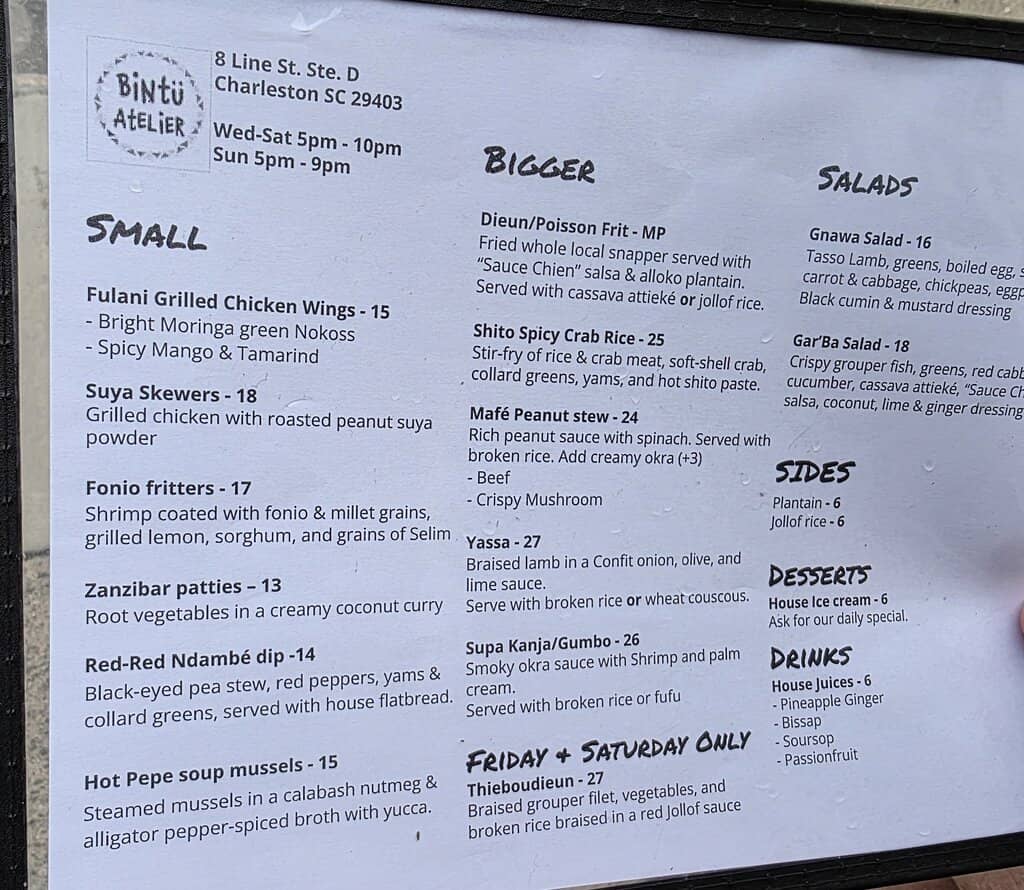 BiNtü
AtELiER
8 Line St. Ste. D
Charleston SC 29403
Wed-Sat 5pm - 10pm
Sun 5pm - 9pm
SMALL
Fulani Grilled Chicken Wings - 15
- Bright Moringa green Nokoss
- Spicy Mango & Tamarind
Suya Skewers - 18
Grilled chicken with roasted peanut suya
powder
Fonio fritters - 17
Shrimp coated with fonio & millet grains,
grilled lemon, sorghum, and grains of Selim
Zanzibar patties – 13
Root vegetables in a creamy coconut curry
Red-Red Ndambé dip -14
Black-eyed pea stew, red peppers, yams &
collard greens, served with house flatbread.
Hot Pepe soup mussels - 15
Steamed mussels in a calabash nutmeg &
alligator pepper-spiced broth with yucca.
BIGGER
Dieun/Poisson Frit - MP
Fried whole local snapper served with
“Sauce Chien” salsa & alloko plantain.
Served with cassava attieké or jollof rice.
Shito Spicy Crab Rice - 25
Stir-fry of rice & crab meat, soft-shell crab,
collard greens, yams, and hot shito paste.
Mafé Peanut stew - 24
Rich peanut sauce with spinach. Served with
broken rice. Add creamy okra (+3)
- Beef
- Crispy Mushroom
Yassa - 27
Braised lamb in a Confit onion, olive, and
lime sauce.
Serve with broken rice or wheat couscous.
Supa Kanja/Gumbo - 26
Smoky okra sauce with Shrimp and palm
cream.
Served with broken rice or fufu
FRIDAY & SATURDAY ONLY
Thieboudieun - 27
Braised grouper filet, vegetables, and
broken rice braised in a red Jollof sauce
SALADS
Gnawa Salad - 16
Tasso Lamb, greens, boiled egg,
carrot & cabbage, chickpeas,
Black cumin & mustard dressing
Gar’Ba Salad - 18
Crispy grouper fish, greens, red
cucumber, cassava attieké, “Sauce
salsa, coconut, lime & ginger dressing
SIDES
Plantain - 6
Jollof rice - 6
DESSERTS
House Ice cream - 6
Ask for our daily special.
DRINKS
House Juices - 6
- Pineapple Ginger
- Bissap
- Soursop
- Passionfruit